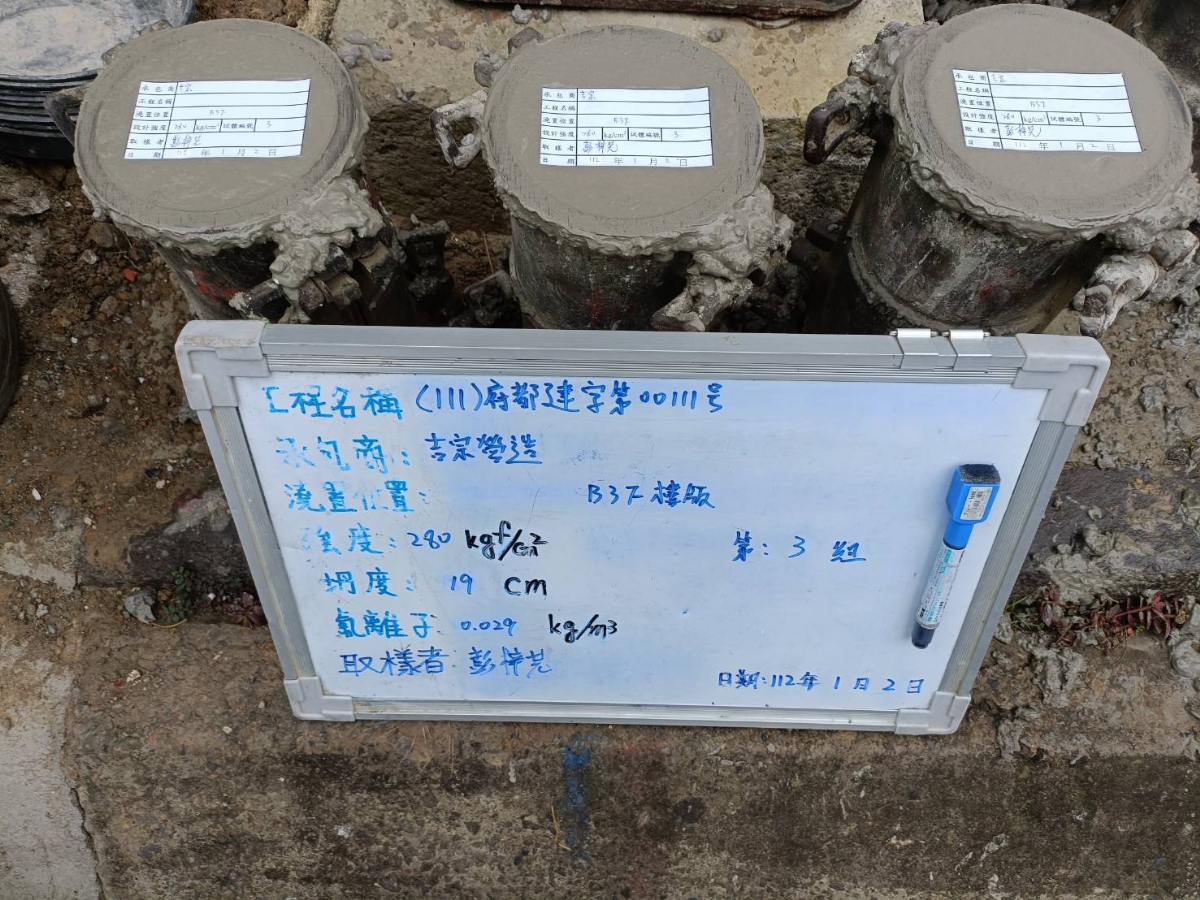 承包商 吉宗
工程名稱
澆置位置 B3F
設計強度 280 kg/cm² 試體編號 3
取樣者 彭梓芫
日期 112年1月2日
承包商 吉宗
工程名稱
澆置位置 B3F
設計強度 280 kg/cm² 試體編號 3
取樣者 彭梓芫
日期 112年1月2日
承包商 吉宗
工程名稱
澆置位置 B3F
設計強度 280 kg/cm² 試體編號 3
取樣者 彭梓芫
日期 112年1月2日
工程名稱 (111)府都建字第00111号
承包商: 吉宗營造
澆置位置: B3F樓版
強度: 280 kgf/cm² 第: 3 組
坍度: 19 cm
氯離子: 0.029 kg/m3
取樣者 彭梓芫
日期:112年1月2日